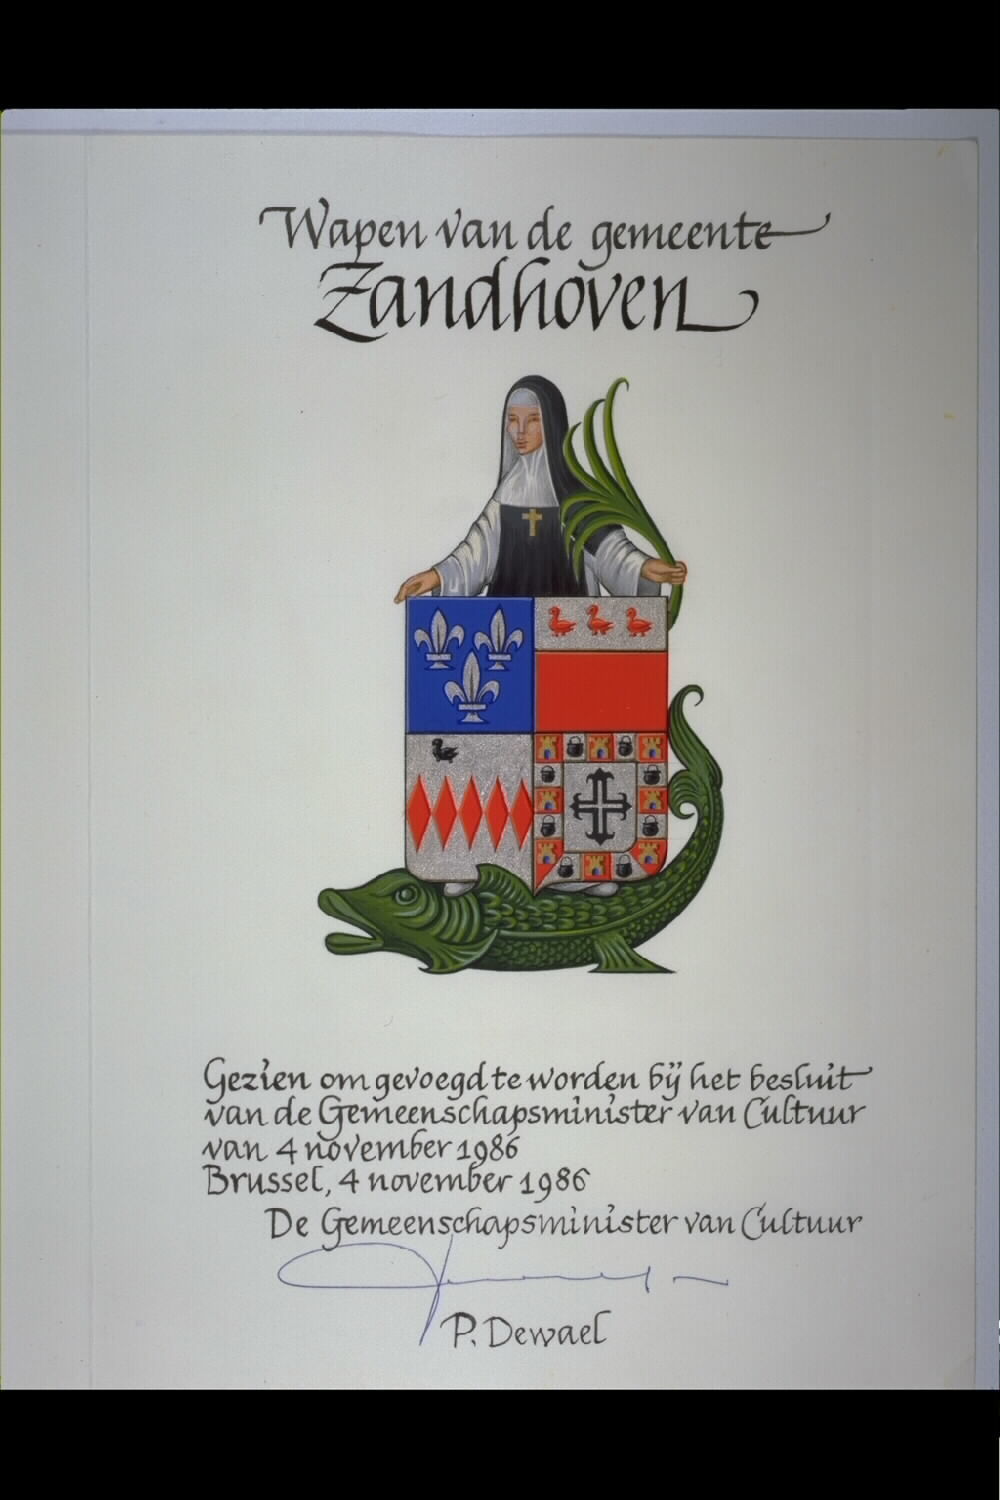 Wapen van de gemeente
Zandhoven
Gezien om gevoegd te worden bij het besluit
van de Gemeenschapsminister van Cultuur
van 4 november 1986
Brussel, 4 november 1986
De Gemeenschapsminister van Cultuur
P. Dewael